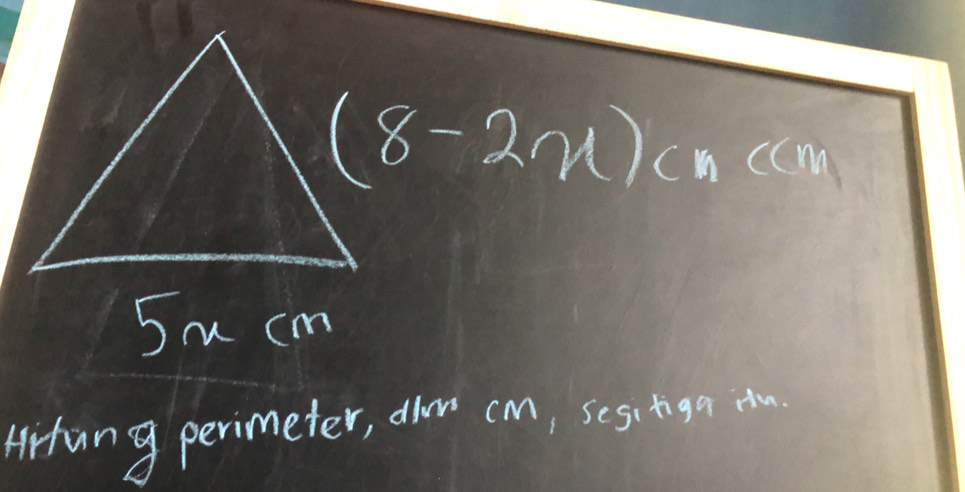 (8-2x)cm ccm
5x cm
Hitung perimeter, dlm cm, segitiga itu.